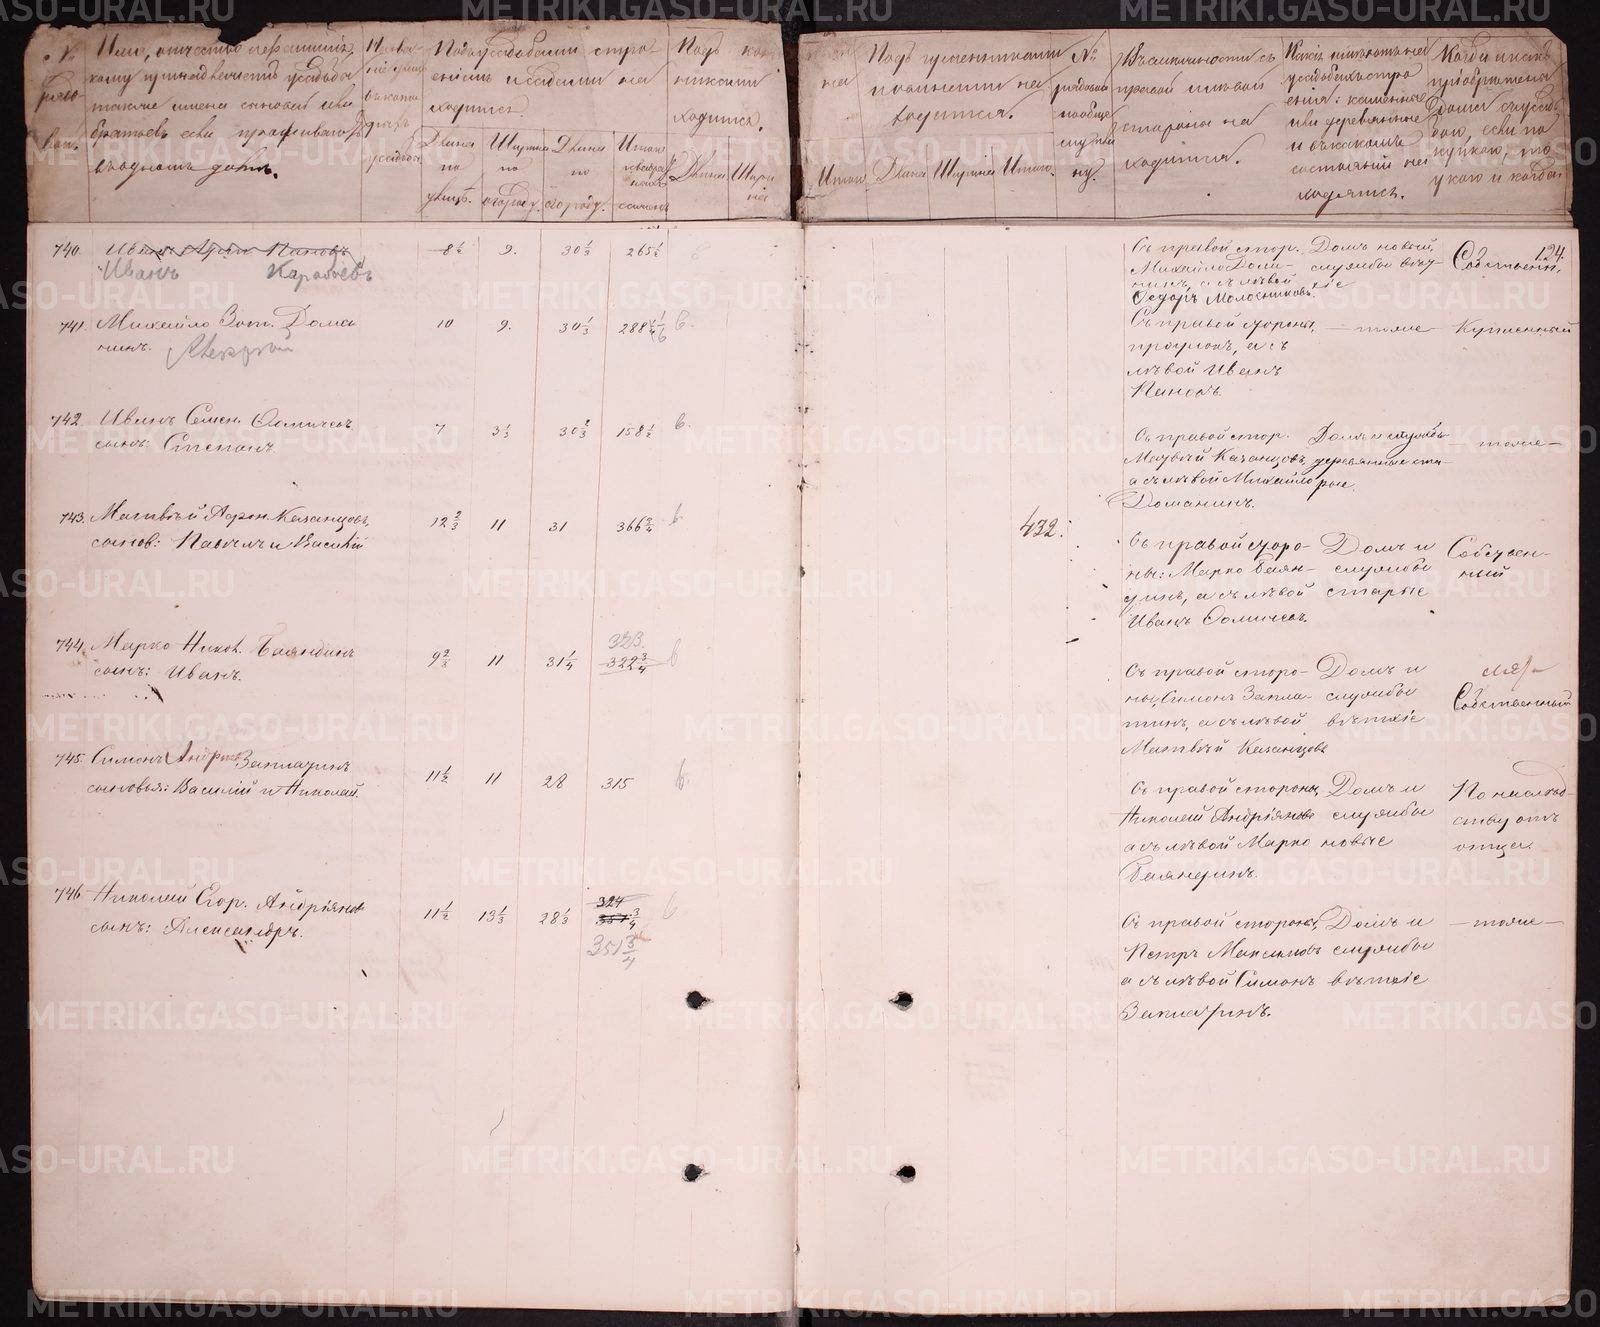 №
Имя, отчество и фамилія,
кому принадлежитъ усадьба
также имена сыновей или
братьевъ если проживаютъ
въ одномъ домѣ.
усадьба.
Подъ усадебнымъ строеніемъ и садами находится
Длина по улицѣ.
Ширина по огороду.
Длина по огороду.
Итого квадратныхъ саженъ
Подъ
находится.
Длина
Ширина
Итого
Подъ гуменниками
находится.
Длина
Ширина
Итого.
№
Въ смежности съ
правой и лѣвой
стороны находится.
Какія имѣются на
усадьбахъ строенія: каменные
или деревянные
и въ какомъ
состояніи находятся.
Когда и какъ
пріобрѣтена
если покупкою, то
у кого и когда
124.
740.
Иванъ Панов
Иванъ Карабаевъ
8½ 9. 30⅓ 265½
Съ правой стор.
Михайло Доманинъ, а съ лѣвой
Ѳедоръ Молосниковъ.
Домъ новый,
службы ветхіе
Собственн.
741.
Михайло Зот. Доманинъ.
10 9. 30⅓ 288 в.
Съ правой стороны,
прогонъ, а съ
лѣвой Иванъ
Пановъ.
— тоже —
Купленный
742.
Иванъ Семен. Ѳомичевъ
сынъ: Степанъ.
7 3⅓ 30⅔ 158½ в.
Съ правой стор.
Матвѣй Казанцовъ,
а съ лѣвой Михайло
Доманинъ.
Домъ и службы
деревянные старые.
— тоже —
743.
Матвѣй Афон. Казанцовъ,
сынов: Павелъ и Василій
12⅔ 11 31 366¾ в
432.
Съ правой стороны: Марко Баяндинъ, а съ лѣвой
Иванъ Ѳомичевъ.
Домъ и
службы
старые
Собственный
744.
Марко Никол. Баяндинъ
сынъ: Иванъ.
9⅔ 11 31¼ 322¾ в
323.
Съ правой стороны, Симонъ Заплатинъ, а съ лѣвой
Матвѣй Казанцовъ
Домъ и
службы
ветхіе
Собственный
745.
Симонъ Андреев. Заплатинъ
сыновья: Василій и Николай.
11½ 11 28 315 в
Съ правой стороны,
Николай Андріяновъ
а съ лѣвой Марко
Баяндинъ.
Домъ и
службы
новые
По наслѣдству отъ
отца.
746
Николай Егор. Андріяновъ
сынъ: Александръ.
11½ 13⅓ 28⅓ 324
351¾
Съ правой стороны,
Петръ Максимовъ
а съ лѣвой Симонъ
Заплатинъ.
Домъ и
службы
ветхіе
— тоже —
METRIKI.GASO-URAL.RU